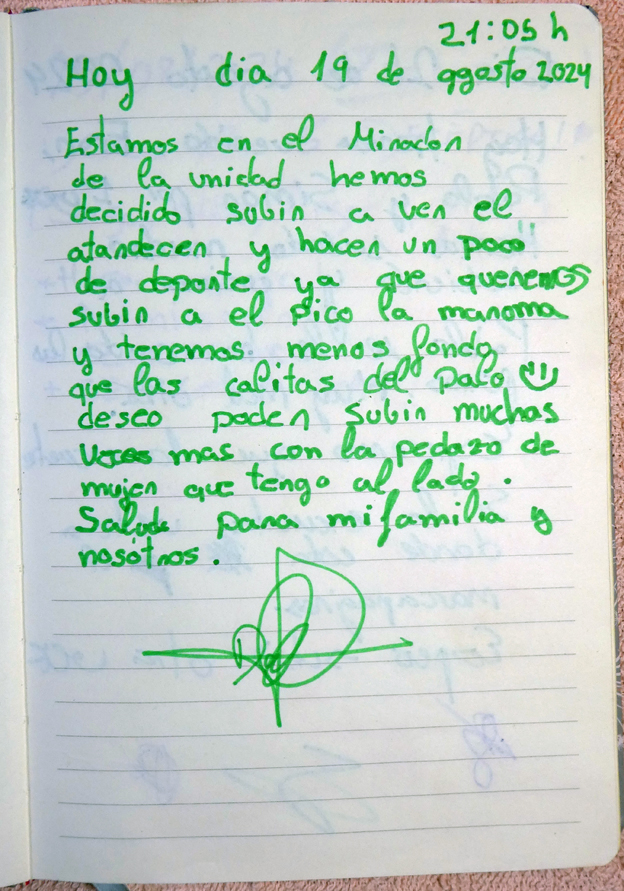 21:05 h
Hoy dia 19 de agosto 2024
Estamos en el Mirador
de la unidad hemos
decidido subir a ver el
atardecer y hacer un poco
de deporte ya que queremos
subir a el pico la maroma
y tenemos menos fondo
que las calitas del palo
deseo poder subir muchas
veces mas con la pedazo de
mujer que tengo al lado.
Salud para mi familia y
nosótros.